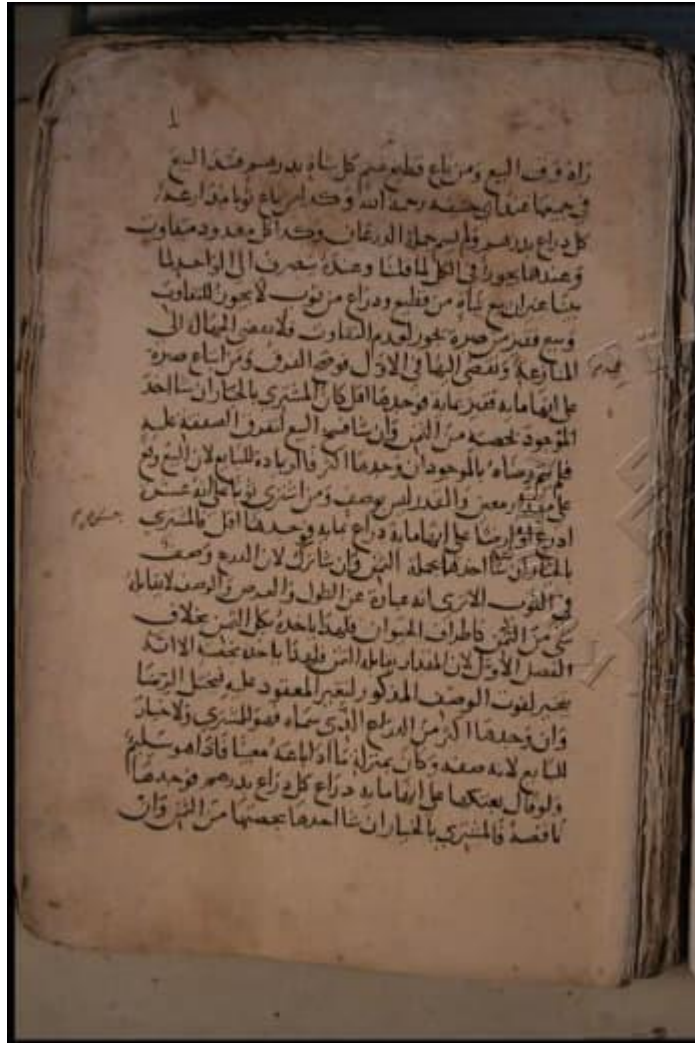 رآه وقت البيع ومن باع قطيع غنم كل شاة بدرهم فسد البيع
في جميعها عند ابي حنيفه رحمه الله وكذا من باع ثوبا مذارعة
كل ذراع بدرهم ولم يسم جملة الذرعان وكذا كل معدود متفاوت
وعندهما يجوز في الكل لما قلنا وعنده ينصرف الى الواحد لما
بينا غير ان بيع شاة من قطيع وذراع من ثوب لا يجوز للتفاوت
وبيع قفيز من صبرة يجوز لعدم التفاوت فلا تفضي الجهالة الى
المنازعة وتفضي اليها في الاول فوضح الفرق ومن ابتاع صبرة
على انها مايه قفيز بمايه فوجدها اقل كان المشتري بالخيار ان شا اخذ
الموجود بحصته من الثمن وان شا فسخ البيع لتفرق الصفقة عليه
فلم يتم رضاه بالموجود ان وجدها اكثر فالزيادة للبايع لان البيع وقع
على مقدار معين والقدر ليس بوصف ومن اشترى ثوبا على انه عشرة
اذرع او ارضا على انها مايه ذراع بمايه فوجدها اقل فالمشتري
بالخيار ان شا اخذها بجملة الثمن وان شا ترك لان الذرع وصف
في الثوب الا ترى انه عبارة عن الطول والعرض والوصف لا يقابله
شي من الثمن كاطراف الحيوان فلهذا ياخذه بكل الثمن بخلاف
الفصل الاول لان المقدار يقابله الثمن فلهذا ياخذه بحصته الا انه
يتخير لفوت الوصف المذكور لتغير المعقود عليه فيختل الرضا
وان وجدها اكثر من الذراع الذي سماه فهو للمشتري ولا خيار
للبايع لانه صفه وكان بمنزلة ما اذا باعه معيبا فاذا هو سليم
ولو قال بعتكها على انها مايه ذراع كل ذراع بدرهم فوجدها
ناقصة فالمشتري بالخيار ان شا اخذها بحصتها من الثمن وان